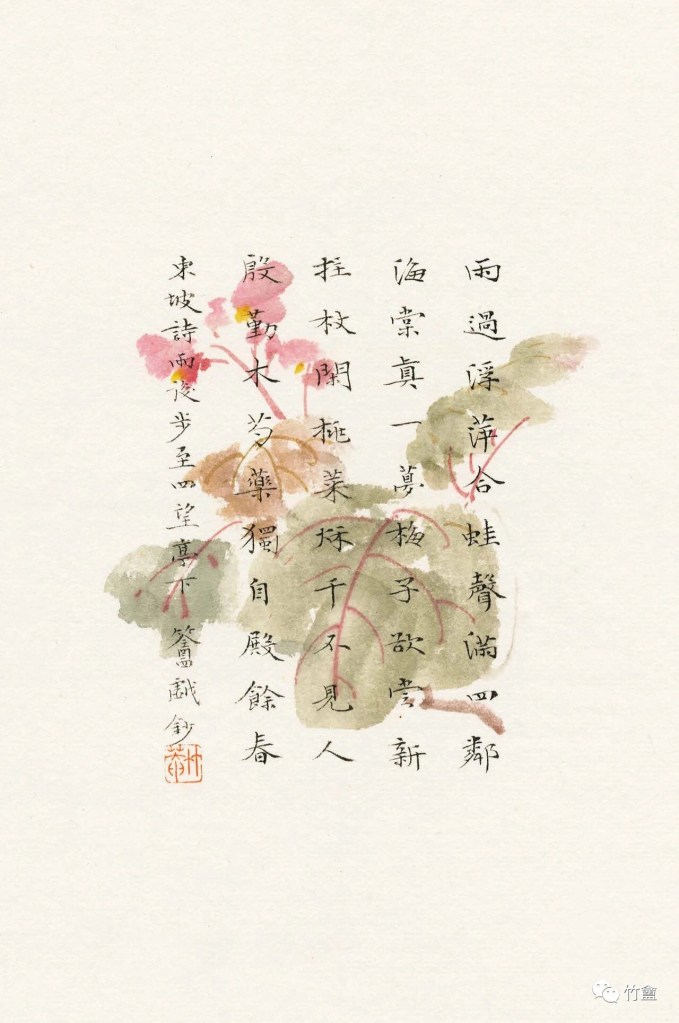 雨過浮萍合蛙聲滿四鄰
海棠真一夢梅子欲嘗新
拄杖閑挑菜秋千不見人
殷勤木芍藥獨自殿餘春
東坡詩雨後步至四望亭下 竹盦戲鈔
竹盦